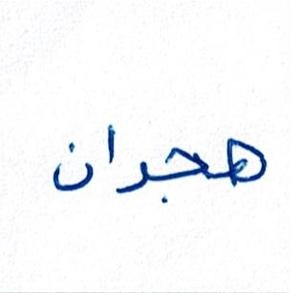 هجران